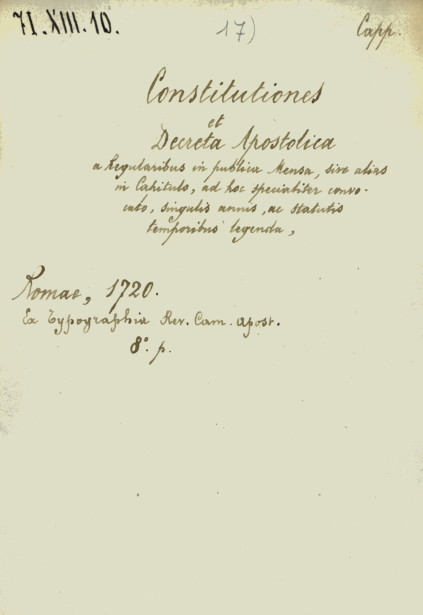 71.XIII.10. 17) Capp.
Constitutiones
et
Decreta Apostolica
a Regularibus in publica Mensa, sive alias
in Capitulo, ad hoc specialiter convo-
cato, singulis annis, ac statutis
temporibus legenda,
Romae, 1720.
Ex Typographia Rev. Cam. Apost.
8°. p.